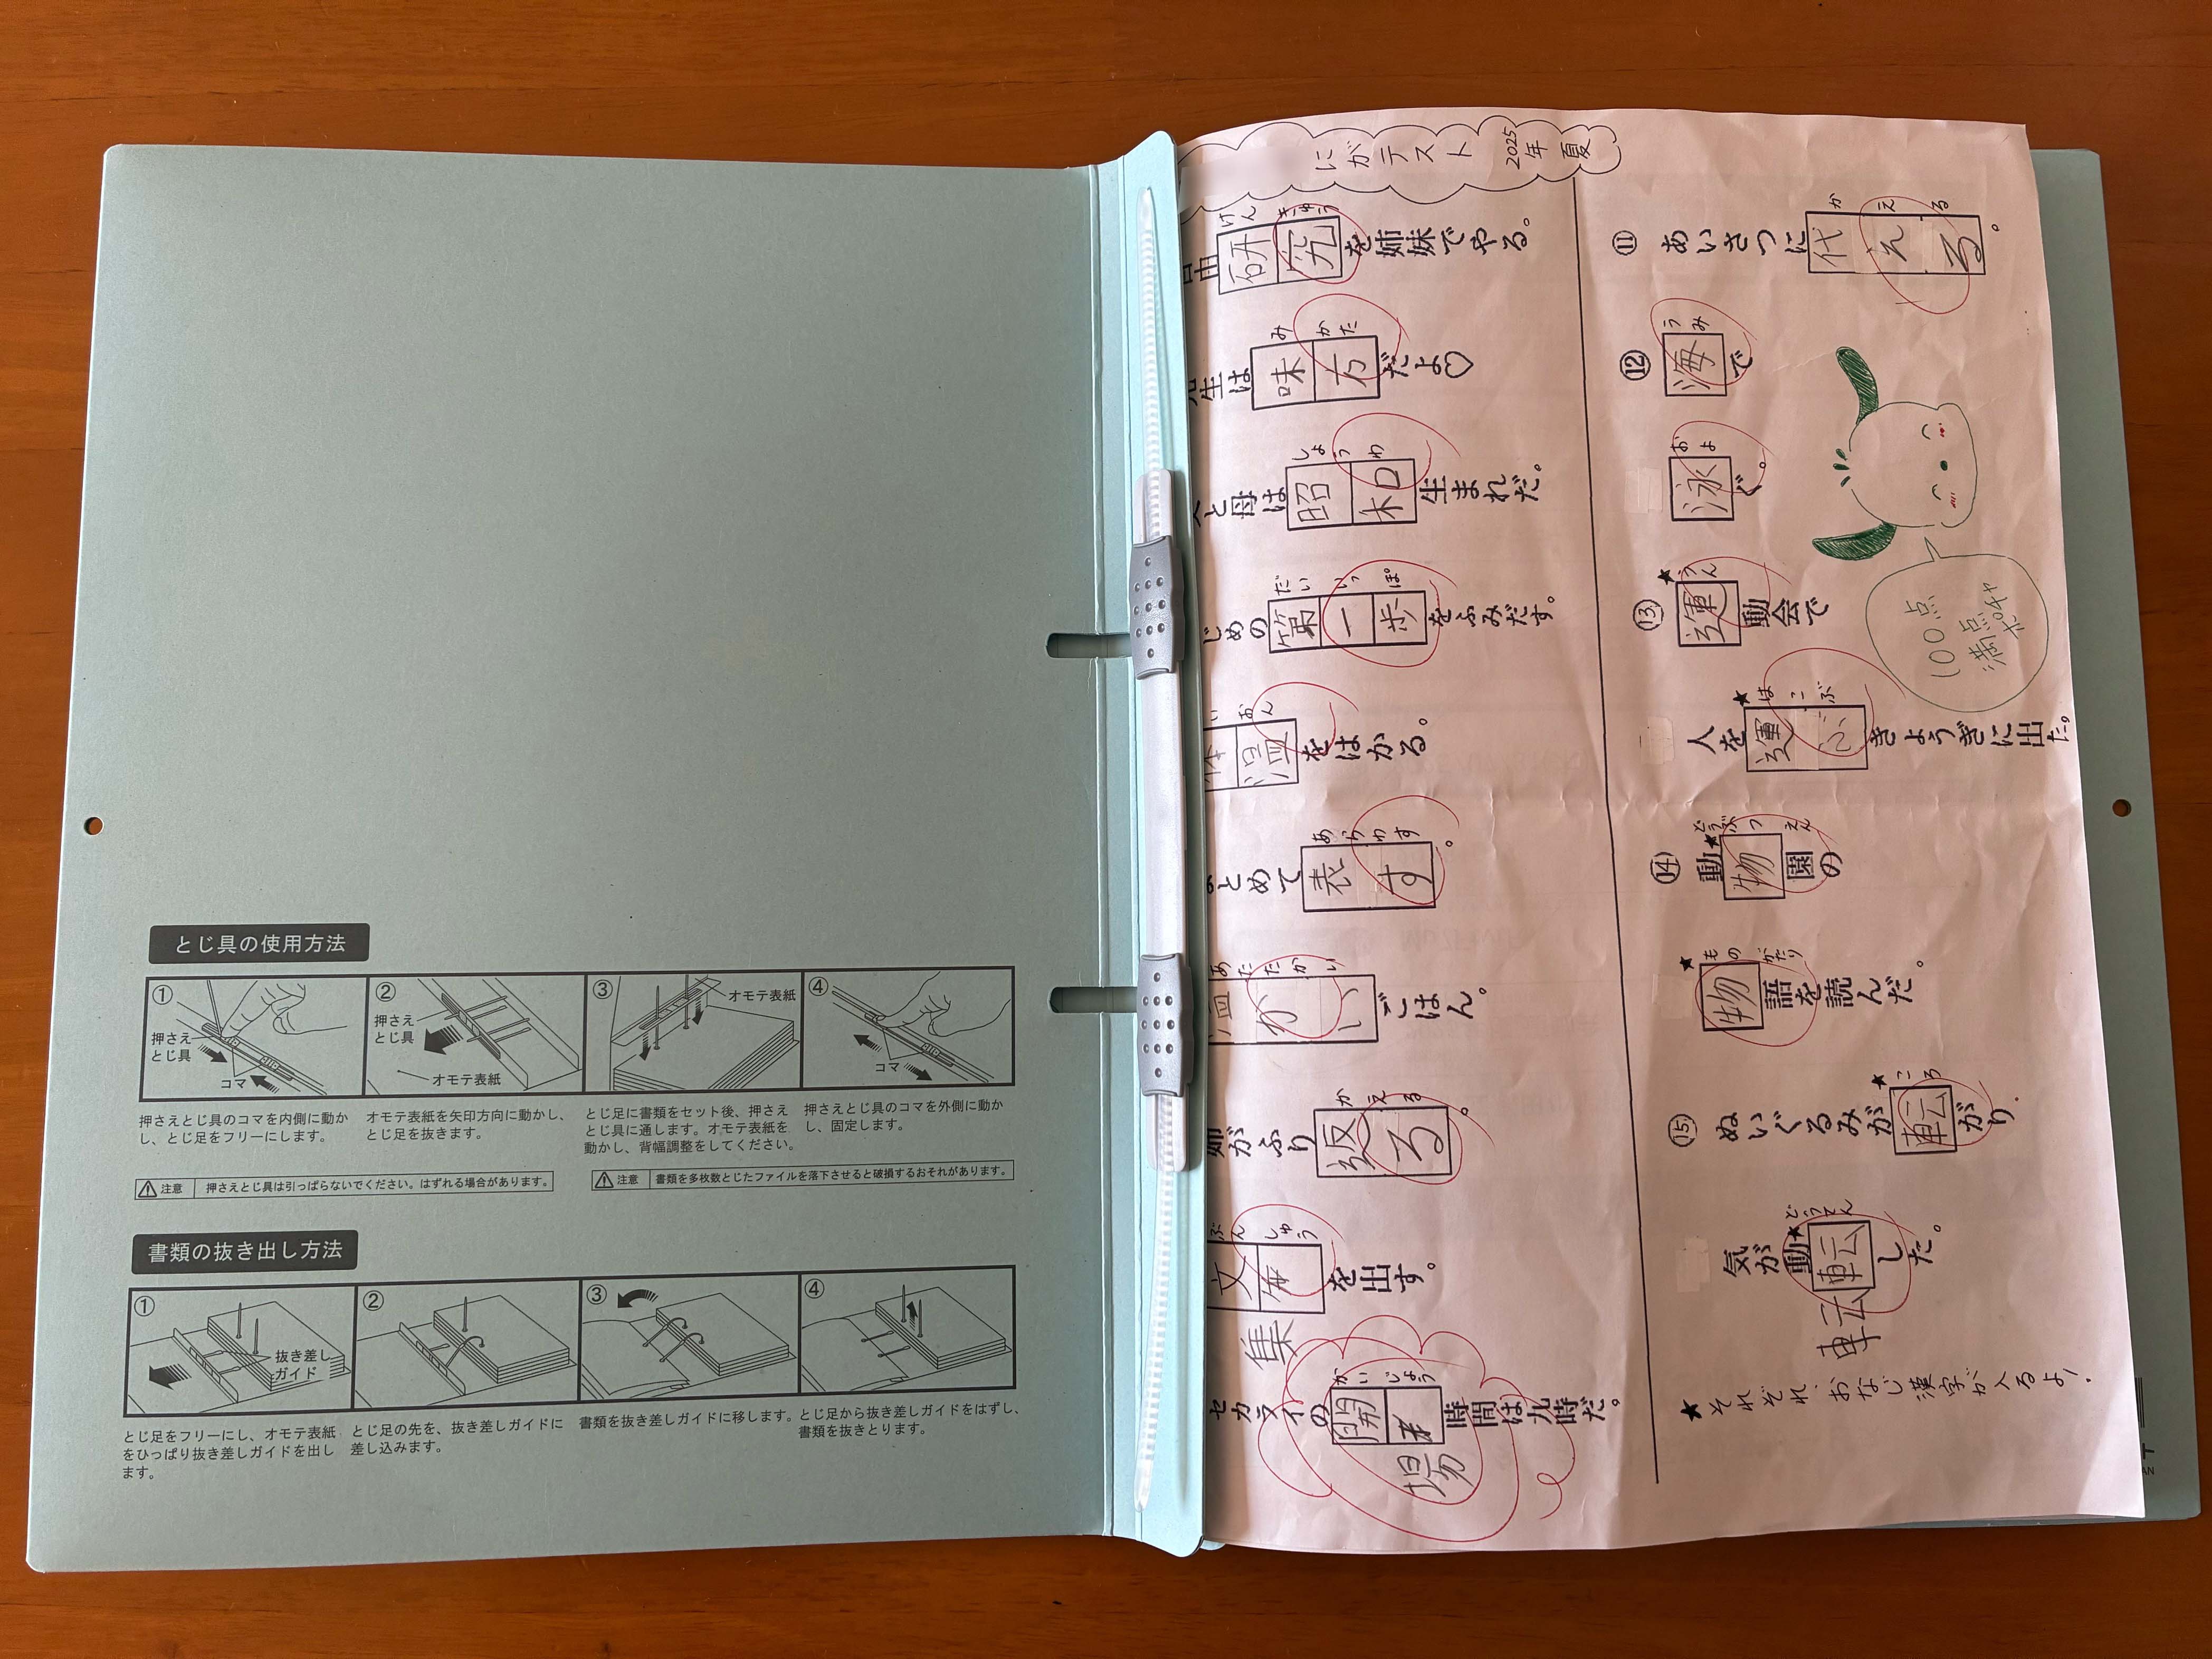 とじ具の使用方法
①
押さえ
とじ具
コマ
②
押さえ
とじ具
オモテ表紙
③
オモテ表紙
④
コマ
押さえとじ具のコマを内側に動か
し、とじ足をフリーにします。
オモテ表紙を矢印方向に動かし、
とじ足を抜きます。
とじ足に書類をセット後、押さえ
とじ具に通します。オモテ表紙を
動かし、背幅調整をしてください。
押さえとじ具のコマを外側に動か
し、固定します。
注意 押さえとじ具は引っぱらないでください。はずれる場合があります。
注意 書類を多枚数とじたファイルを落下させると破損するおそれがあります。
書類の抜き出し方法
①
抜き差し
ガイド
②
③
④
とじ足をフリーにし、オモテ表紙
をひっぱり抜き差しガイドを出し
ます。
とじ足の先を、抜き差しガイドに
差し込みます。
書類を抜き差しガイドに移します。
とじ足から抜き差しガイドをはずし、
書類を抜きとります。
にがテスト 2025年 夏
けん きゅう
由研究を姉妹でやる。
み かた
生は味方だよ♡
しょう わ
と母は昭和生まれだ。
だい いっ ぽ
じめの第一歩をふみだす。
い おん
体温をはかる。
あらわす
とめて表す。
あたたかい
温かいごはん。
かえる
姉がふり返る。
ぶん しゅう
文を出す。
集
かい じょう
セカライの開時間は九時だ。
場
かえる
⑪ あいさつに代える。
うみ
⑫ 海で
およ
泳ぐ。
★うん
⑬ 運動会で
★はこぶ
人を運ぶきょうぎに出た。
どうぶつえん
⑭ 動★物園の
★ものがたり
物語を読んだ。
★ころ
⑮ ぬいぐるみが転がり.
どうてん
気が動★転した。
転
★それぞれ、おなじ漢字が入るよ!
100点
満点
ポチャ